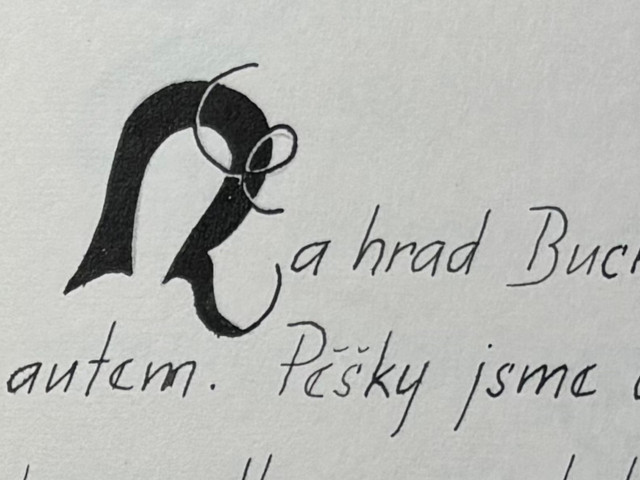 Na hrad
autem. Pěšky jsme